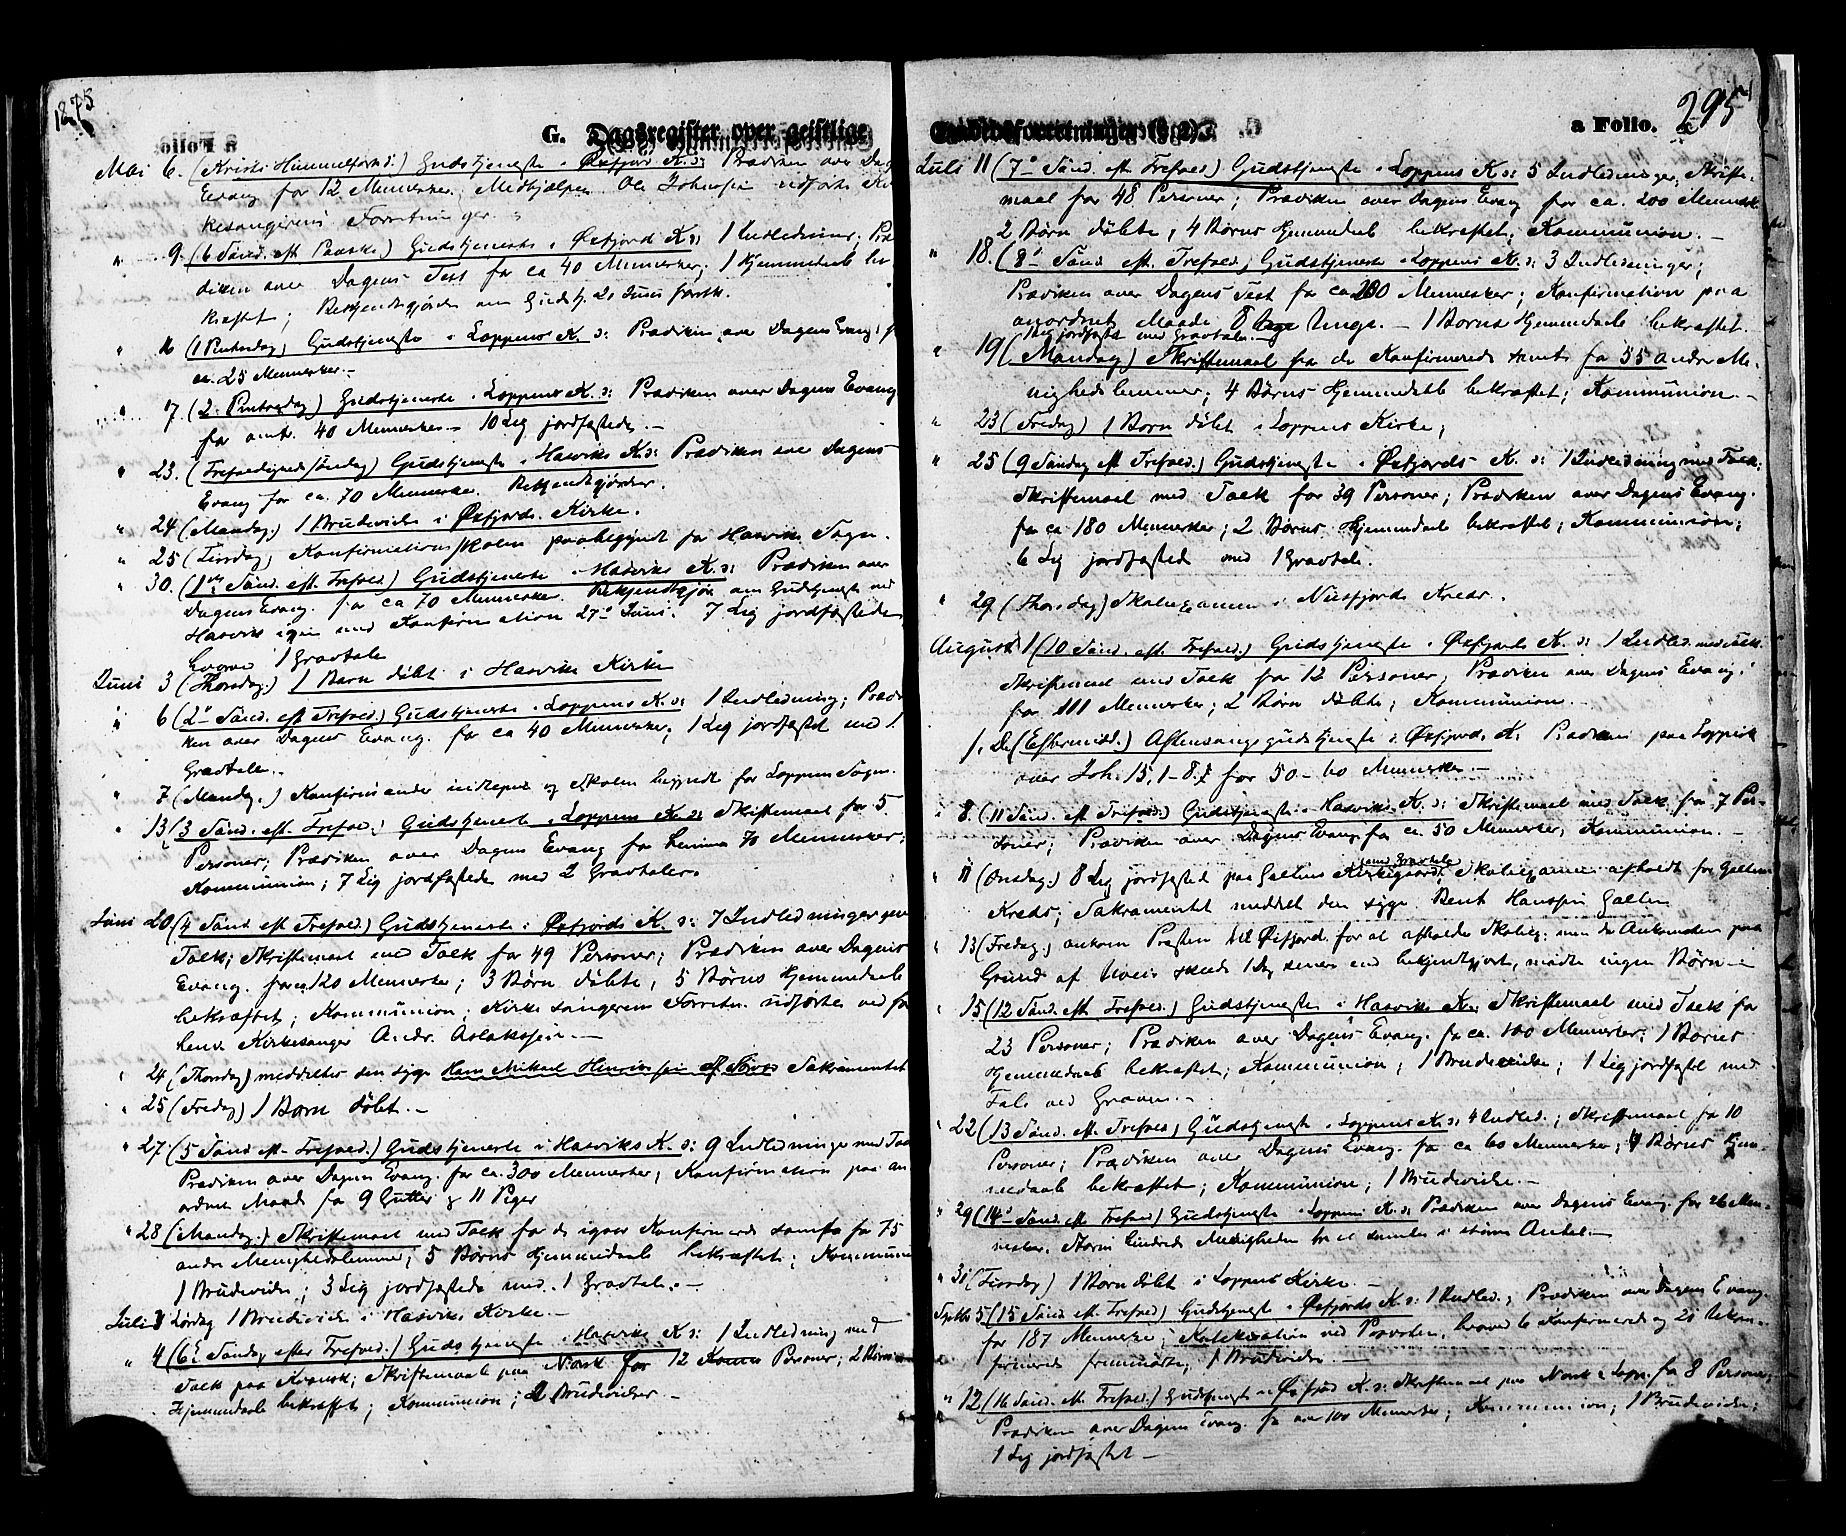 1875
G. Dagsregister over geistlige
Mai 6. (Kristi Himmelfartsd.) Gudstjeneste i Øxfjord K. s: Prædiken over Dag
Evang for 12 Mennesker. Medhjælper Ole Johnsen udførte Kir
kesangerens Forretninger.
" 9. (6 Sønd. eft Paaske) Gudstjeneste i Øxfjord K s: 1 Indledning; Præ
diken over Dagens Text for ca 40 Mennesker; 1 Hjemmedaab be
kræftet; Bekjendtgjørelse om Gudstj. 20 Juni førstk.
" 16 (1 Pintsedag) Gudstjeneste i Loppens K. s: Prædiken over Dagens Evang; f
ca. 25 Mennesker.-
" 17 (2. Pintsedag) Gudstjeneste i Loppens K. s: Prædiken over Dagens Evang
for omtr. 40 Mennesker - 10 Lig jordfæstede. -
" 23. (Trefoldighedssøndag) Gudstjeneste i Hasviks K. s: Prædiken over Dagens
Evang for ca. 70 Mennesker. Bekjendtgjørelser.
" 24 (Mandag.) 1 Brudevielse i Øxfjords Kirke.
" 25 (Tirsdag) Konfirmationsskolen paabegyndt for Hasviks Sogn.
" 30. (1ste Sønd. eft. Trefold.) Gudstjeneste i Hasviks K. s: Prædiken over
Dagens Evang. for ca 70 Mennesker. Bekjendtgjør. om Gudstjeneste ved
Hasvik igjen med Konfirmation 27de Juni. 7 Lig jordfæstede
hvorav 1 Gravtale
Juni 3 (Thorsdag.) 1 Barn døbt i Hasviks Kirke
" 6 (2den Sønd. eft Trefold.) Gudstjeneste i Loppens K. s: 1 Indledning; Prædi
ken over Dagens Evang. for ca 40 Mennesker; 1 Lig jordfæstet med 1
Gravtale.
" 7 (Mandag.) Konfirmander indtegnes og Skolen begyndt for Loppens Sogn.
" 13 (3 Sønd. eft. Trefold.) Gudstjeneste i Loppens K. s: Skriftemaal for 5
Personer; Prædiken over Dagens Evang for henimod 70 Mennesker;
Kommunion; 7 Lig jordfæstede med 2 Gravtaler.
Juni 20 (4 Sønd. eft Trefold.) Gudstjeneste i Øxfjords K. s: 7 Indledninger
Talk; Skriftemaal med Talk for 49 Personer; Prædiken over Dagens
Evang. for ca 120 Mennesker; 3 Børn døbte, 5 Børns Hjemmedaab
bekræftet; Kommunion; Kirkesangerens Forretn. udførtes ved for
henv. Kirkesanger Andr. Aslaksen.-
" 24 (Thorsdag) meddeltes den syge Hans Mikael Henriksen af Sørøs Sakramentet
" 25 (Fredag) 1 Barn døbt.-
" 27 (5 Sønd eft. Trefold.) Gudstjeneste i Hasviks K. s: 9 Indledninger med Talk
Prædiken over Dagens Evang. for ca. 300 Mennesker; Konfirmation paa an
ordnet Maade for 9 Gutter & 11 Piger
" 28 (Mandag.) Skriftemaal med Talk for de igaar Konfirmerede samt for 75
andre Menighedslemmer; 5 Børns Hjemmedaab bekræftet; Kommunion
1 Brudevielse; 3 Lig jordfæstede med 1 Gravtale.-
Juli 3 Lørdag 1 Brudevielse i Hasviks Kirke.-
" 4 (6te Søndag efter Trefold.) Gudstjeneste i Hasviks K. s: 1 Indledning med
Talk paa Kvænsk; Skriftemaal paa Norsk for 12 Personer; 2 Børns
Hjemmedaab bekræftet; Kommunion; 2 Brudevielser.-
Embedsforretninger
a Folio. 295
Juli 11 (7de Sønd. eft. Trefold.) Gudstjeneste i Loppens K. s: 5 Indledninger; Skrifte-
maal for 48 Personer; Prædiken over Dagens Evang for ca. 200 Mennesk.
2 Børn døbte, 4 Børns Hjemmedaab bekræftet; Kommunion.-
" 18. (8de Sønd. eft. Trefold.) Gudstjeneste i Loppens K. s: 3 Indledninger;
Prædiken over Dagens Text for ca 200 Mennesker; Konfirmation paa
anordnet Maade 8 Unge. - 1 Børns Hjemmedaab bekræftet.
Lig jordfæstet med Gravtale.
" 19 (Mandag) Skriftemaal for de Konfirmerede samt for 55 andre Me-
nighedslemmer; 4 Børns Hjemmedaab bekræftet; Kommunion.-
" 23 (Fredag) 1 Barn døbt i Loppens Kirke;
" 25 (9 Søndag eft Trefold.) Gudstjeneste i Øxfjords K. s: 1 Indledning med Talk;
Skriftemaal med Talk for 39 Personer; Prædiken over Dagens Evang.
for ca 180 Mennesker; 2 Børns Hjemmedaab bekræftet; Kommunion;
6 Lig jordfæstede med 1 Gravtale.
" 29 (Thorsdag) Skoleexamen i Nusfjords Kreds.
August 1 (10 Sønd. eft. Trefold.) Gudstjeneste i Øxfjords K. s: 1 Indled. med Talk.
Skriftemaal med Talk for 12 Personer; Prædiken over Dagens Evang.
for 111 Mennesker; 2 Børn døbte; Kommunion.-
s. D. (Eftermidd.) Aftensangsgudstjeneste i Øxfjord K. Prædiken paa Lappisk
over Joh. 15, 1-8. for 50-60 Mennesker.-
" 8. (11 Sønd. eft Trefold.) Gudstjeneste i Hasviks K. s: Skriftemaal med Talk for 7 Per-
soner; Prædiken over Dagens Evang for ca. 50 Mennesker; Kommunion.-
" 11 (Onsdag.) 8 Lig jordfæstede paa Galtens Kirkegaard med Gravtale; Skoleexamen afholdt for Galten
Kreds; Sakramentet meddelt den syge Bent Hanssen Galten
" 13 (Fredag.) ankom Præsten til Øxfjord for at afholde Skoleex: men da Ankomsten paa
Grund af Uveir skede 1 Dag senere end bekjentgjort, mødte ingen Børn.-
" 15 (12 Sønd. eft Trefold.) Gudstjeneste i Hasviks K. s: Skriftemaal med Talk for
23 Personer; Prædiken over Dagens Evang. for ca. 100 Mennesker; 1 Børns
Hjemmedaab bekræftet; Kommunion; 1 Brudevielse; 1 Lig jordfæstet med
Tale ved Graven.-
" 22 (13 Sønd. eft. Trefold.) Gudstjeneste i Loppens K. s: 4 Indled.; Skriftemaal for 10
Personer; Prædiken over Dagens Evang. for ca 60 Mennesker; 4 Børns Hjem-
medaab bekræftet; Kommunion; 1 Brudevielse.-
" 29 (14de Sønd. eft Trefold) Gudstjeneste i Loppens K. s: Prædiken over Dagens Evang. for 26 Men-
nesker. Storm hindrede Menigheden fra at samles i større Antal.-
" 31 (Tirsdag) 1 Barn døbt i Loppens Kirke.-
Septbr 5 (15 Sønd. eft Trefold) Gudstjeneste i Øxfjords K. s: 1 Indled.; Prædiken over Dagens Evang.
for 187 Mennesker; Katekisation ved Provsten, hvorved 6 Konfirmerede og 20 Ukon-
firmerede fremmødte; 1 Brudevielse -
" 12 (16 Sønd. eft. Trefold.) Gudstjeneste i Øxfjord K. s: Skriftemaal paa Norsk & Lapp. for 8 Personer;
Prædiken over Dagens Evang. for over 100 Mennesker; Kommunion; 1 Brudevielse;
1 Lig jordfæstet -